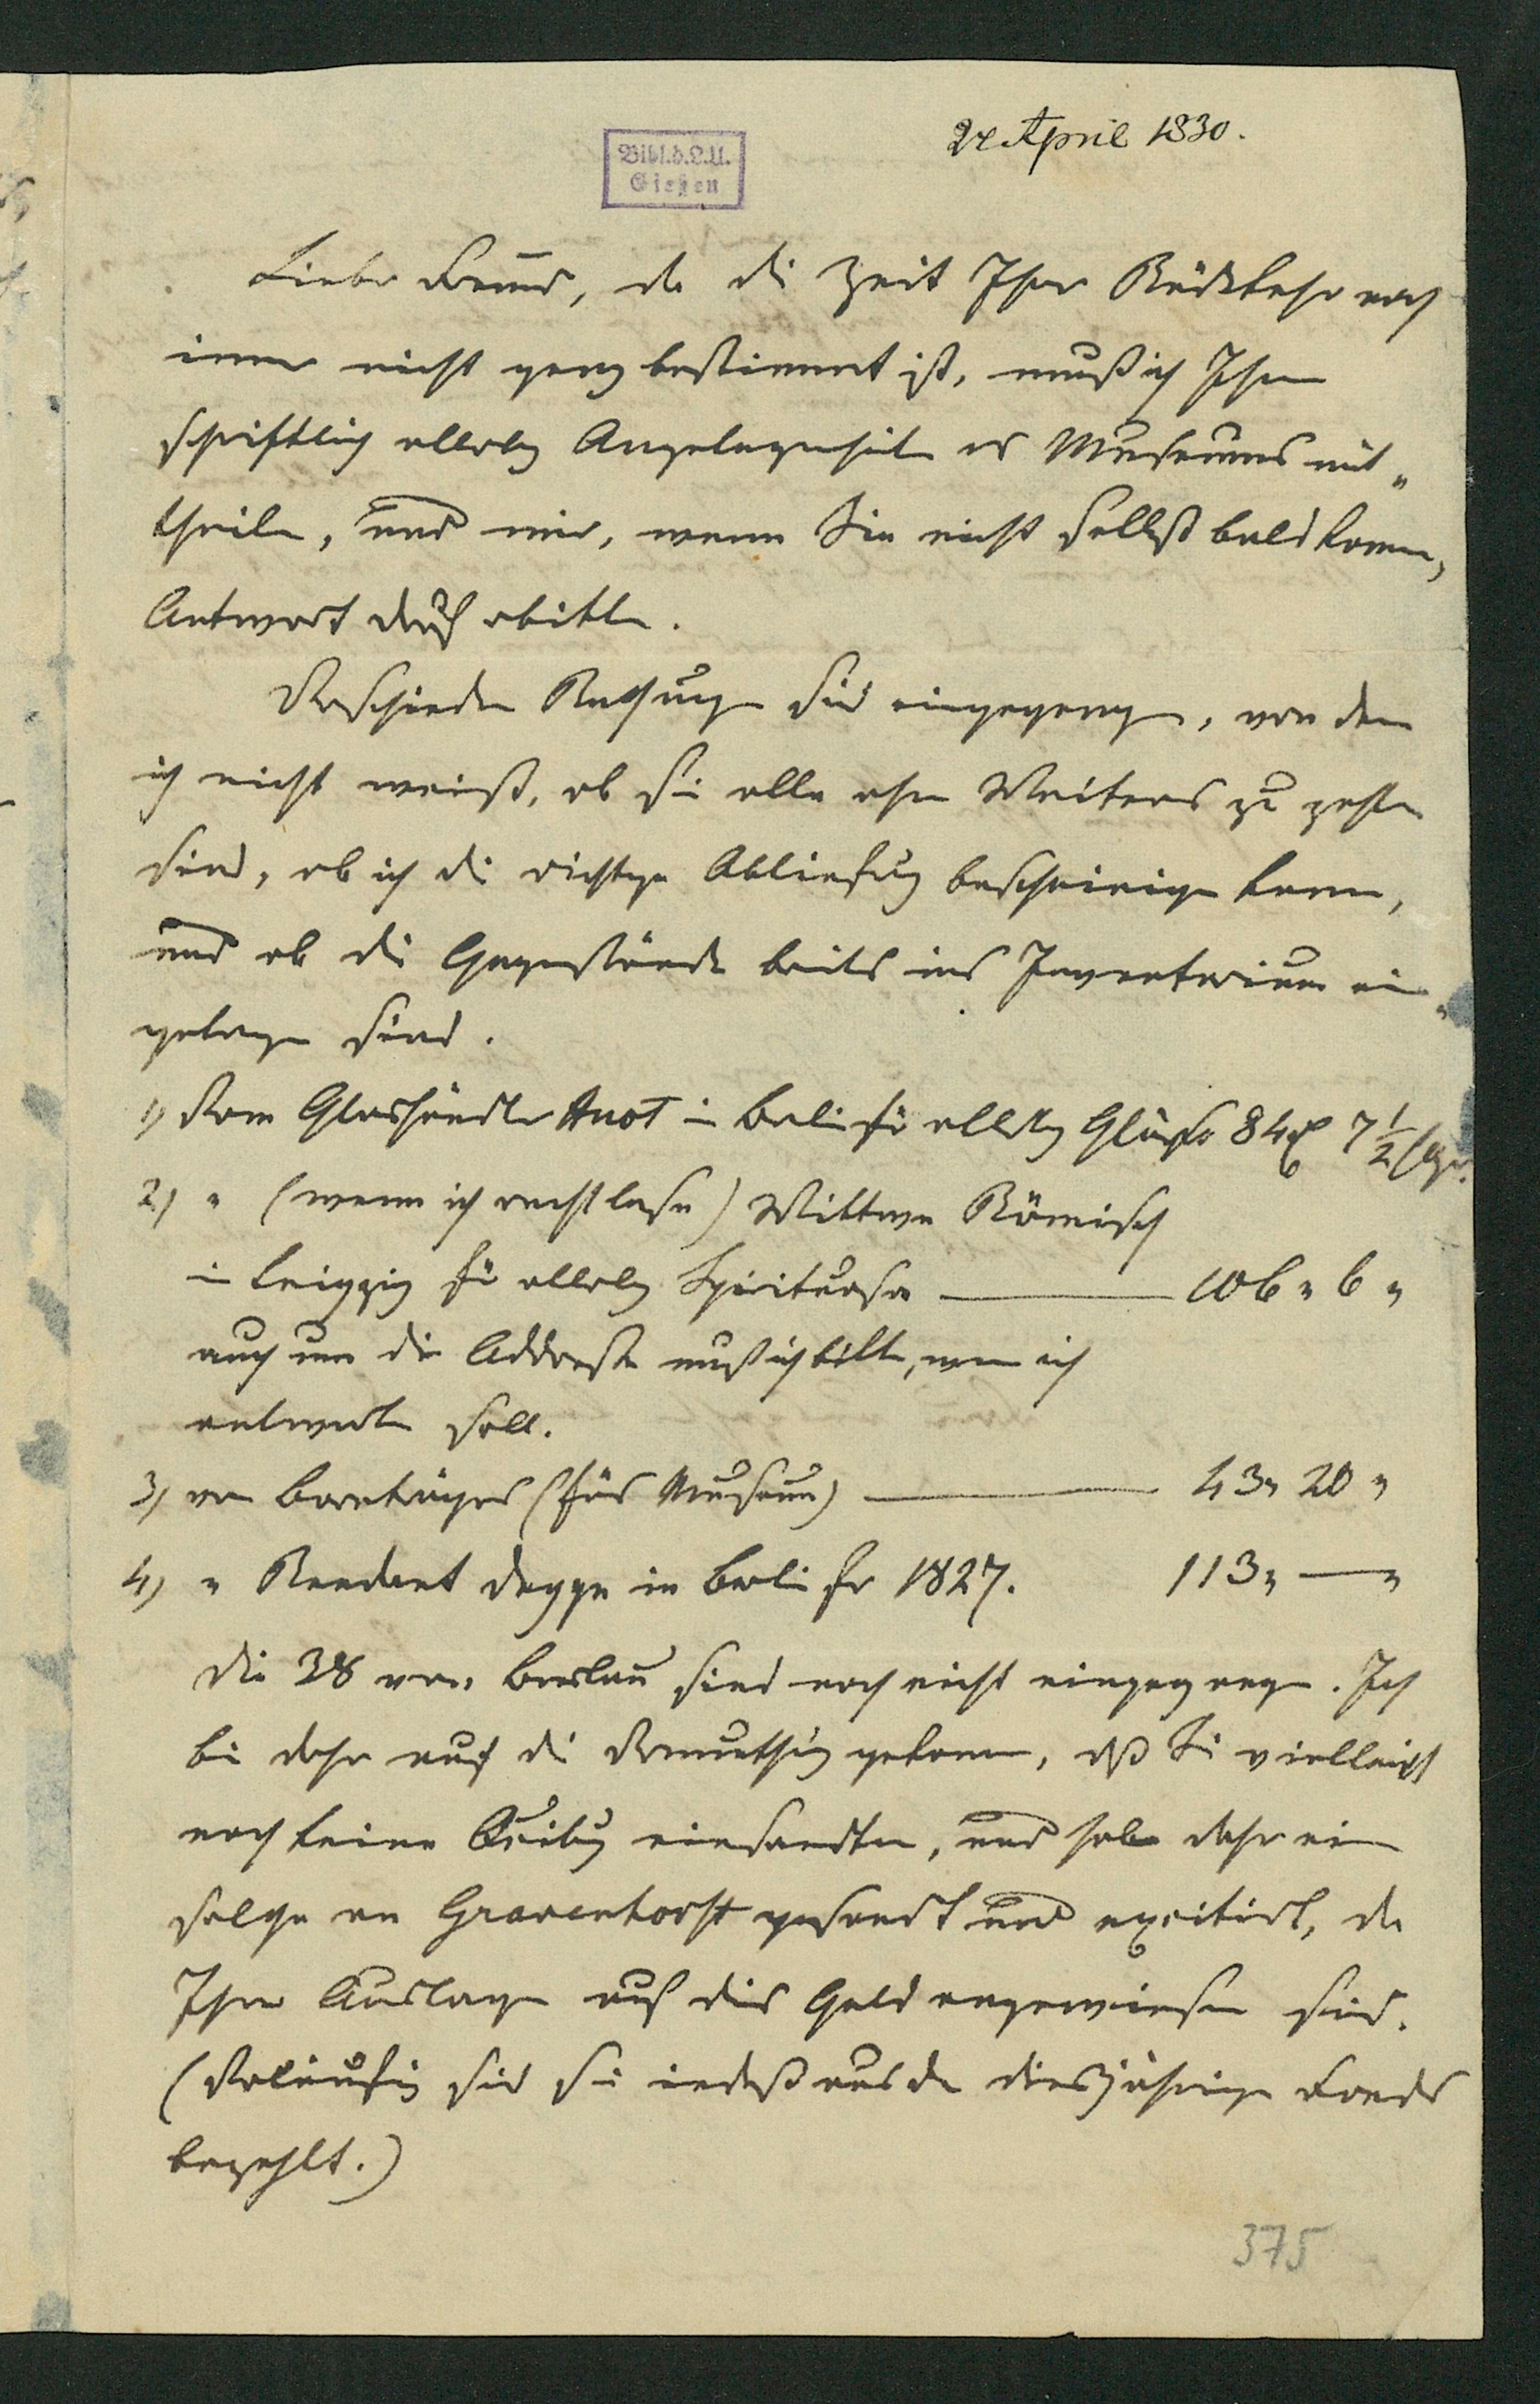 24 April 1830.
Bibl.d.L.U.
Gießen
Lieber Freund, da die Zeit Ihrer Rückkehr noch
immer nicht ganz bestimmt ist, muß ich Ihnen
schriftlich allerley Angelegenheiten des Museums mit„
theilen, und mir, wenn Sie nicht selbst bald kommen,
Antwort drauf erbitten.
Verschiedene Rechnungen sind eingegangen, von denen
ich nicht weiß, ob sie alle ohne Weiteres zu zahlen
sind, ob ich die richtige Ablieferung bescheinigen kann,
und ob die Gegenstände bereits ins Inventarium ein„
getragen sind.
1) Vom Glashändler Anot in Berlin für allerley Gläser 84 rℓ 7 1/2 Sgr.
2) „ (wenn ich recht lese) Wittwe Römisch
in Leipzig für allerley Spirituosa — 106 „ 6 „
auch um die Addresse muß ich bitten, wenn ich
antworten soll.
3) von Bornträger (fürs Museum) — 43 „ 20 „
4) „ Rendant Deppe in Berlin für 1827. 113 „ — „
Die 38 von Breslau sind noch nicht eingegangen. Ich
bin daher auf die Vermuthung gekommen, daß Sie vielleicht
noch keine Quittung einsandten, und habe daher eine
solche an Gravenhorst gesandt und excitirt, da
Ihre Auslagen auf dies Geld angewiesen sind.
(Vorläufig sind sie indeß aus den diesjährigen Fonds
bezahlt.)
375